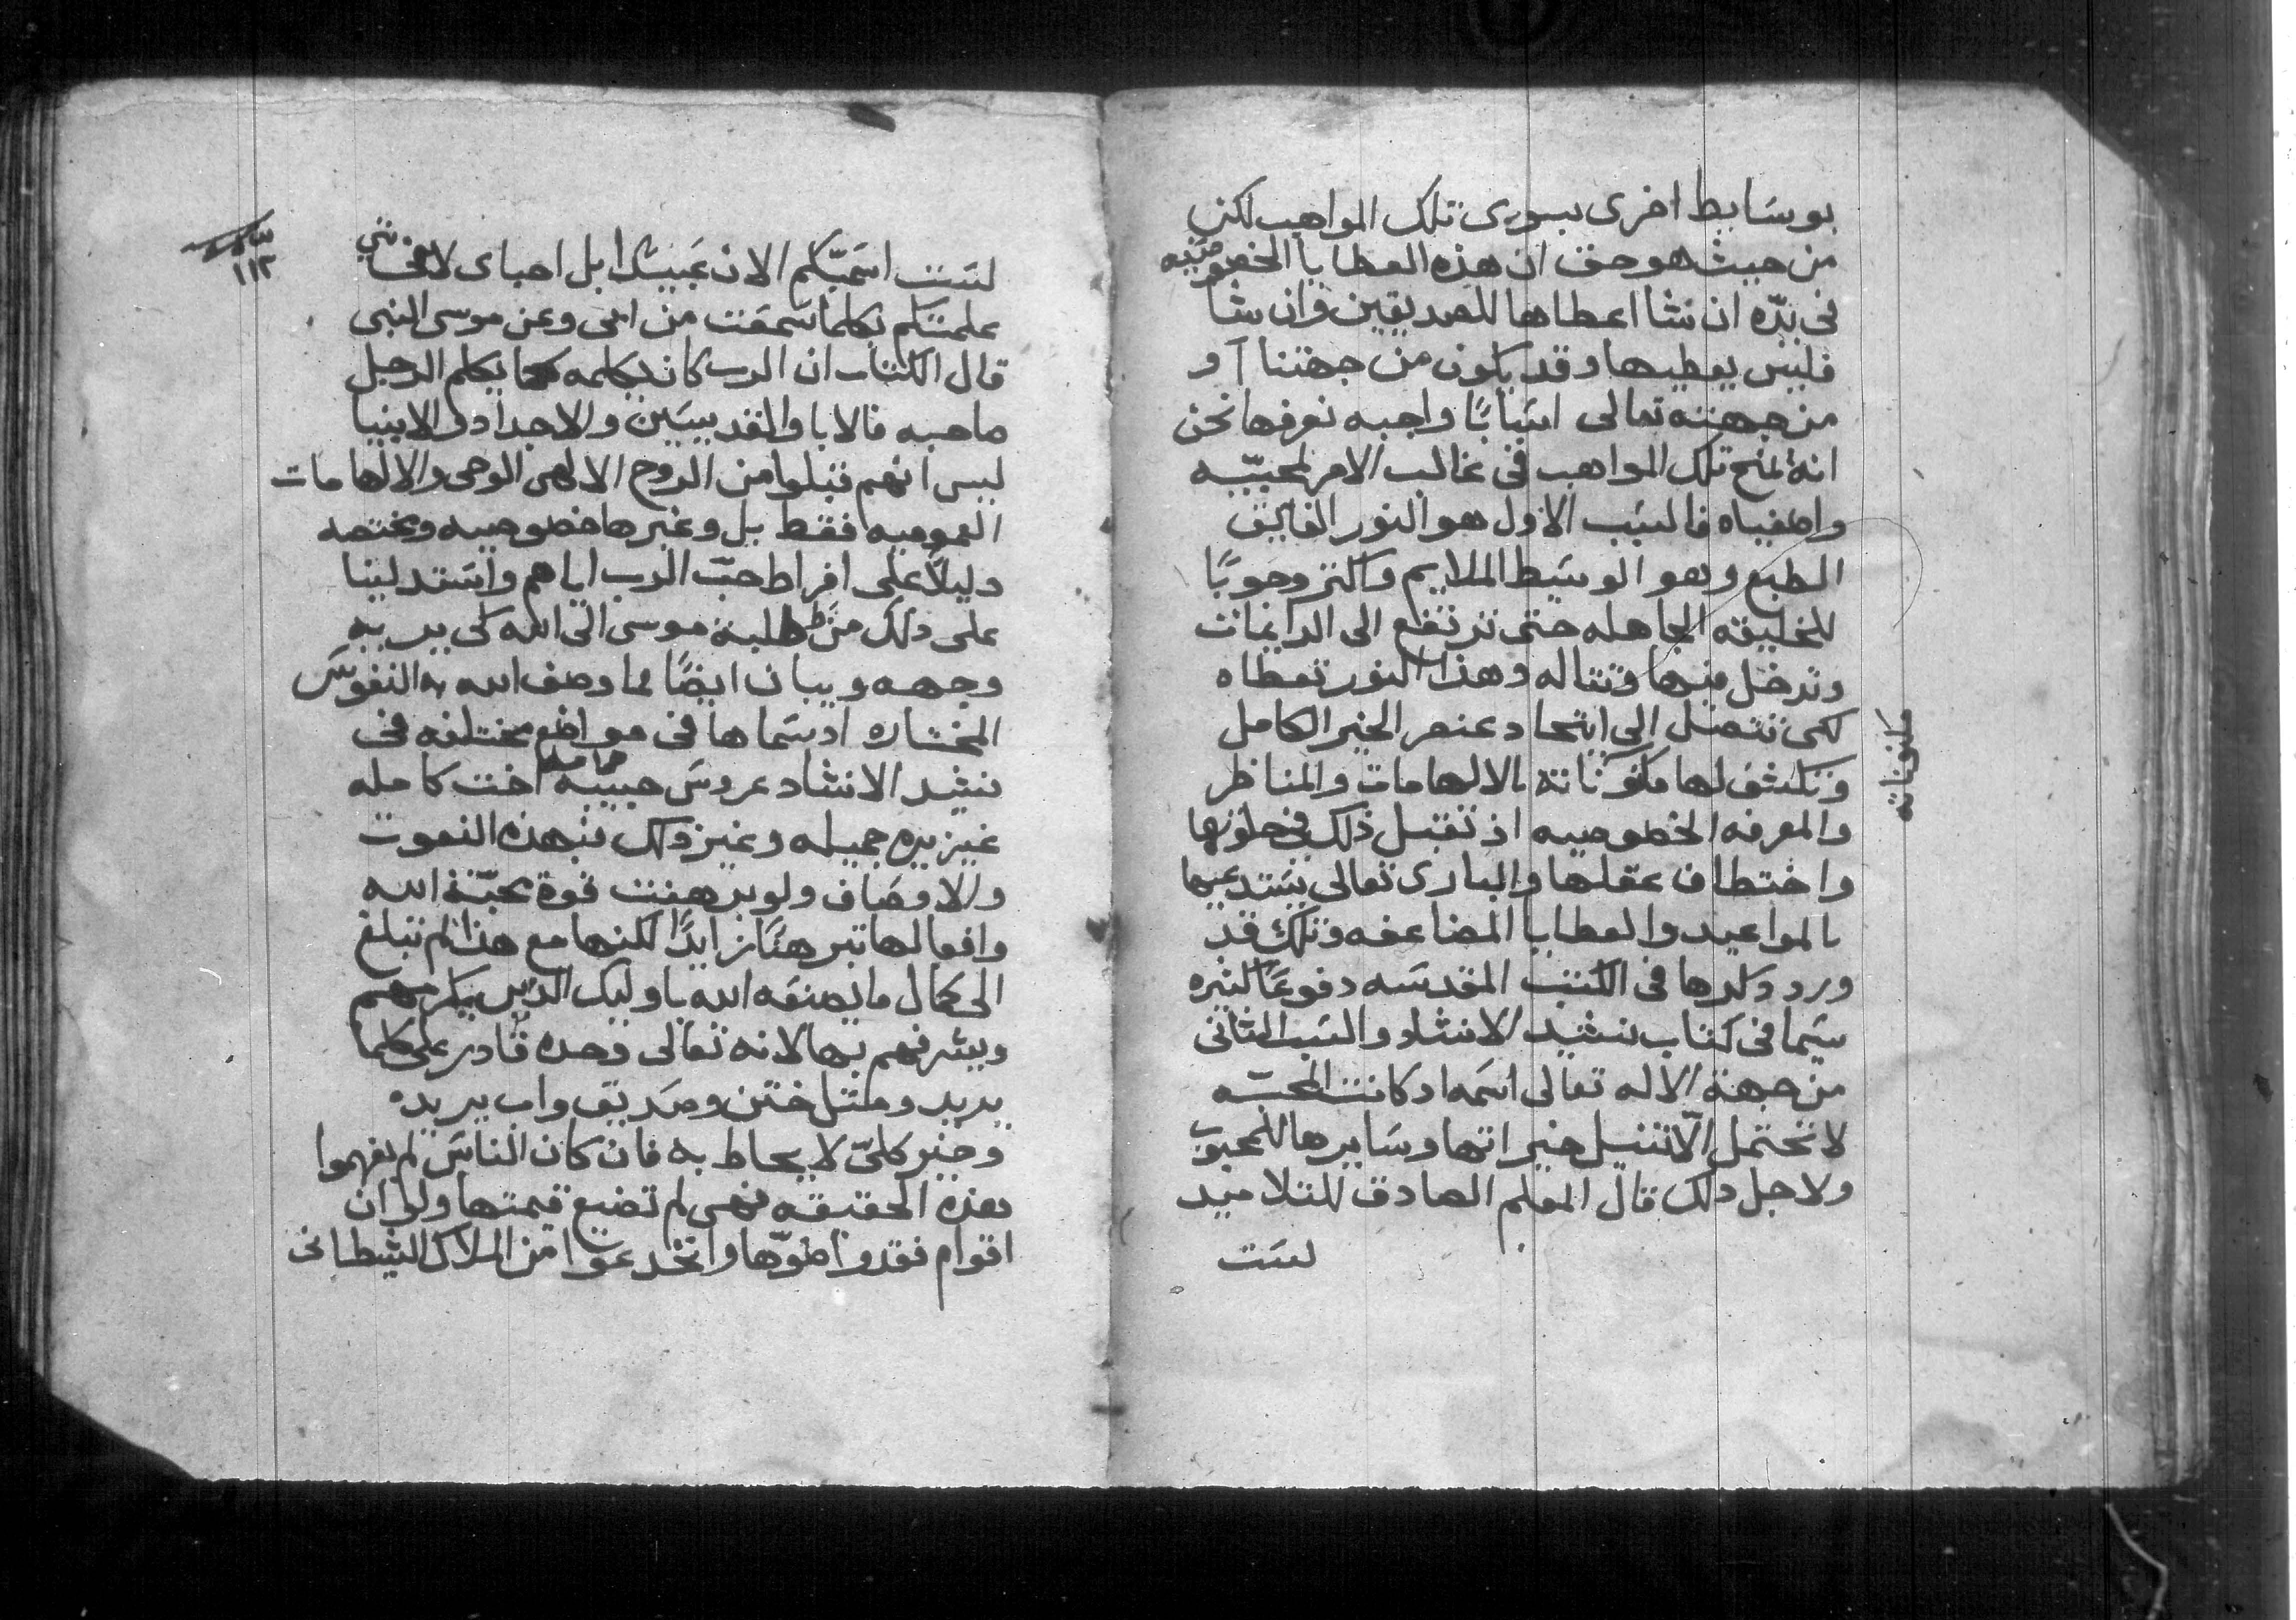 بوسَايط اخرى بسوى تلك المواهب لكن
من حيث هو حق ان هذه العطايا الخصوصَيه
فى يدّه ان شا اعطاها للصديقين وان شا
فليس يعطيها وقد يكون من جهتنا او
من جهته تعالى اسَبابًا واجبه نعرفها نحن
انه لمنح تلك المواهب فى غالب الامر لمحبيّه
واصفياه فالسَبب الاول هو النور الفايق
الطبع وهو الوسَيط الملايم واكثر وجوبًا
للخليقه الجاهله حتى ترتفع الى الدايمات
وتدخل منها وتتاله وهذا النور تعطاه
لكى تتصَل الى اتحاد عنصر الخير الكامل
وتكشف لها مكنوناته بالالهامات والمناظر
مكنوناته
والمعرفه الخصوصيه اذ تقبل ذلك فى خلوتها
واختطاف عقلها والبارى تعالى يسَتدعيها
بالمواعيد والعطايا المضاعفه وتلك قد
ورد ذكرها فى الكتب المقدسَه دفوعًا كثيره
سَيما فى كتاب نشيد الانشاد والسَبب الثانى
من جهة الاله تعالى اسَمه اذ كانت المحبّه
لا تحتمل الّا تنيل خيراتها وسَايرها للمحبوب
ولاجل ذلك قال المعلم الصادق للتلاميد
لسَت
١١٢
لسَت اسَميّكم الان عَبيدًا بل احباى لاننى
علمتكم بكلما سَمعَت من ابى وعن موسى النبى
قال الكتاب ان الرب كان يكلمه كما يكلم الرجل
صاحبه فالابا والقديسَين والاجداد والانبيا
ليس انهم قبلوا من الروح الالهى الوحى والالهامات
العموميه فقط بل وغيرها خصوصيه ومختصه
دليلًا على افراط حبّ الرب اياهم واسَتدلينا
على ذلك من طلبة موسى الى الله لكى يريه
وجهه ويبان ايضًا لما وصف الله به النفوسَ
المختاره اد سَماها فى مواضع مختلفه فى
نشيد الانشاد عروسَ حبيبه حمامه اخت كامله
عزيزه جميله وغير ذلك فبهذه النعوت
والاوصَاف ولو برهنت قوة محبّة الله
وافعالها تبرهنًا زايدًا لكنها مع هذا لم تبلغ
الى كمال ما يصنعَه الله باوليك الدين يكرمهم
ويشرفهم بها لانه تعالى وحده قادر على كلما
يريد ومثل ختن وصَديق واب يريده
وخير كلىّ لا يحاط به فان كان الناسَ لم يفهموا
هذه الحقيقه فهى لم تضيع قيمتها ولو ان
اقوام فقدوا ضوّها وانخدعَوا من الملاك الشيطانى